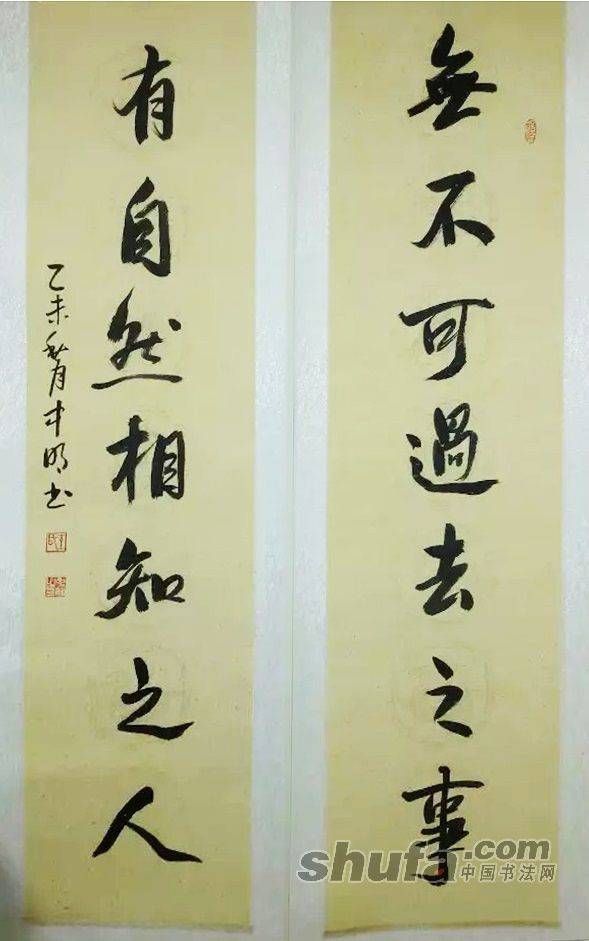 無不可過去之事
有自然相知之人
乙未秋月中明书
shufa.com
中国书法网